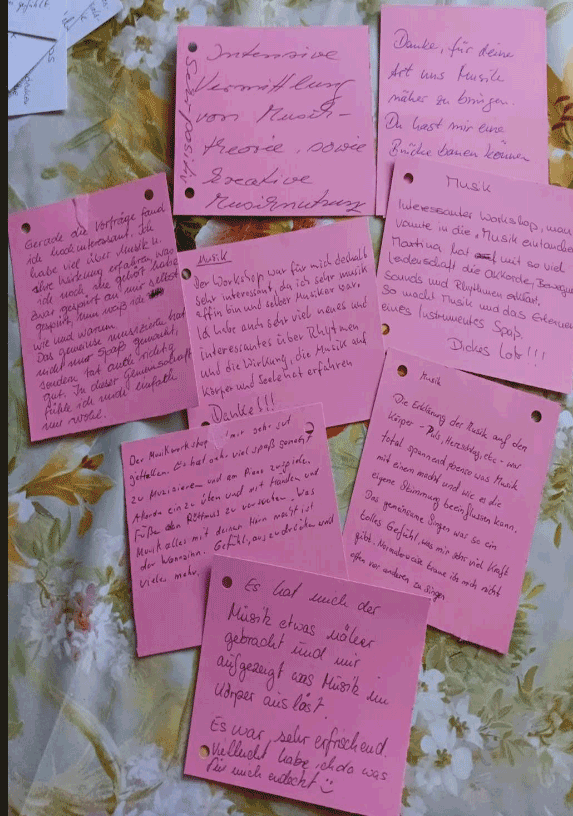 Intensive
Vermittlung
von Musik-
theorie, sowie
kreative
Musiknutzung
Sehr positiv
Danke, für deine
Art uns Musik
näher zu bringen.
Du hast mir eine
Brücke bauen können
Gerade die Vorträge fand
ich hochinteressant. Ich
habe viel über Musik u.
ihre Wirkung erfahren, was
ich noch nie gehört habe
zwar gespürt an mir selbst
gespürt. Nun weiß ich
wie und warum.
Das gemeinsame musizieren hat
nicht nur Spaß gemacht,
sondern tat auch richtig
gut. In dieser Gemeinschaft
fühle ich mich einfach
nur wohl.
Musik
Der Workshop war für mich deshalb
sehr interessant, da ich sehr musik
affin bin und selber Musiker war.
Id habe auch sehr viel neues und
interessantes über Rhytmen
und die Wirkung, die Musik auf
Körper und Seele hat erfahren
Danke!!!
Musik
Interessanter Workshop, man
konnte in die Musik eintauchen
Martina hat mit so viel
Leidenschaft die Akkorde, Bewegung
Sounds und Rhythmen erklärt.
So macht Musik und das Erlernen
eines Instrumentes Spaß.
Dickes Lob!!!
Der Musikworkshop mir sehr gut
gefallen. Es hat sehr viel spaß gemacht
zu Musizieren und am Piano zuspielen
Akorde ein zu üben und mit händen und
Füße den Rhtmus zu
Musik alles mit deinem Hirn macht ist
der Wahnsinn. Gefühl, aus zu drücken und
vieles mehr.
Musik
Die Erklärung der Musik auf den
Körper - Puls, Herzschlag, etc - war
total spannend, ebenso was Musik
mit einem macht und wie es die
eigene Stimmung beeinflussen kann.
Das gemeinsame Singen war so ein
tolles Gefühl, was mir sehr viel Kraft
gibt. Normalerweise traue ich mich nicht
offen vor anderen zu singen
Es hat mich der
Musik etwas näher
gebracht und mir
aufgezeigt was Musik im
Körper aus löst.
Es war sehr erfrischend.
Vielleicht habe ich da was
für mich endeckt